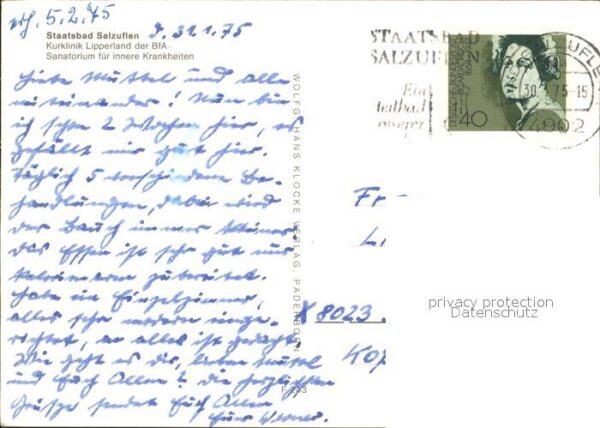 erh. 5.2.75
d. 31.1.75
Staatsbad Salzuflen
Kurklinik Lipperland der BfA
Sanatorium für innere Krankheiten
Liebe Muttel und alle
miteinander! Nun bin
ich schon 2 Wochen hier, es
gefällt mir gut hier.
Täglich 5 verschiedene Be-
handlungen, dabei wird
der Bauch immer kleiner
das Essen ist sehr gut nur
kalorienarm zubereitet.
Habe ein Einzelzimmer,
alles sehr modern einge-
richtet, an alles ist gedacht.
Wie geht es dir, liebe Muttel
und Euch Allen? die herzlichsten
Grüsse sendet Euch Allen
Euer Werner.
WOLFGANG HANS KLOCKE VERLAG PADERBORN
STAATSBAD
SALZUFLEN
Ein
Heilbad
unserer
40
30. 1.75-15
4902
Fr
X 8023
privacy protection
Datenschutz